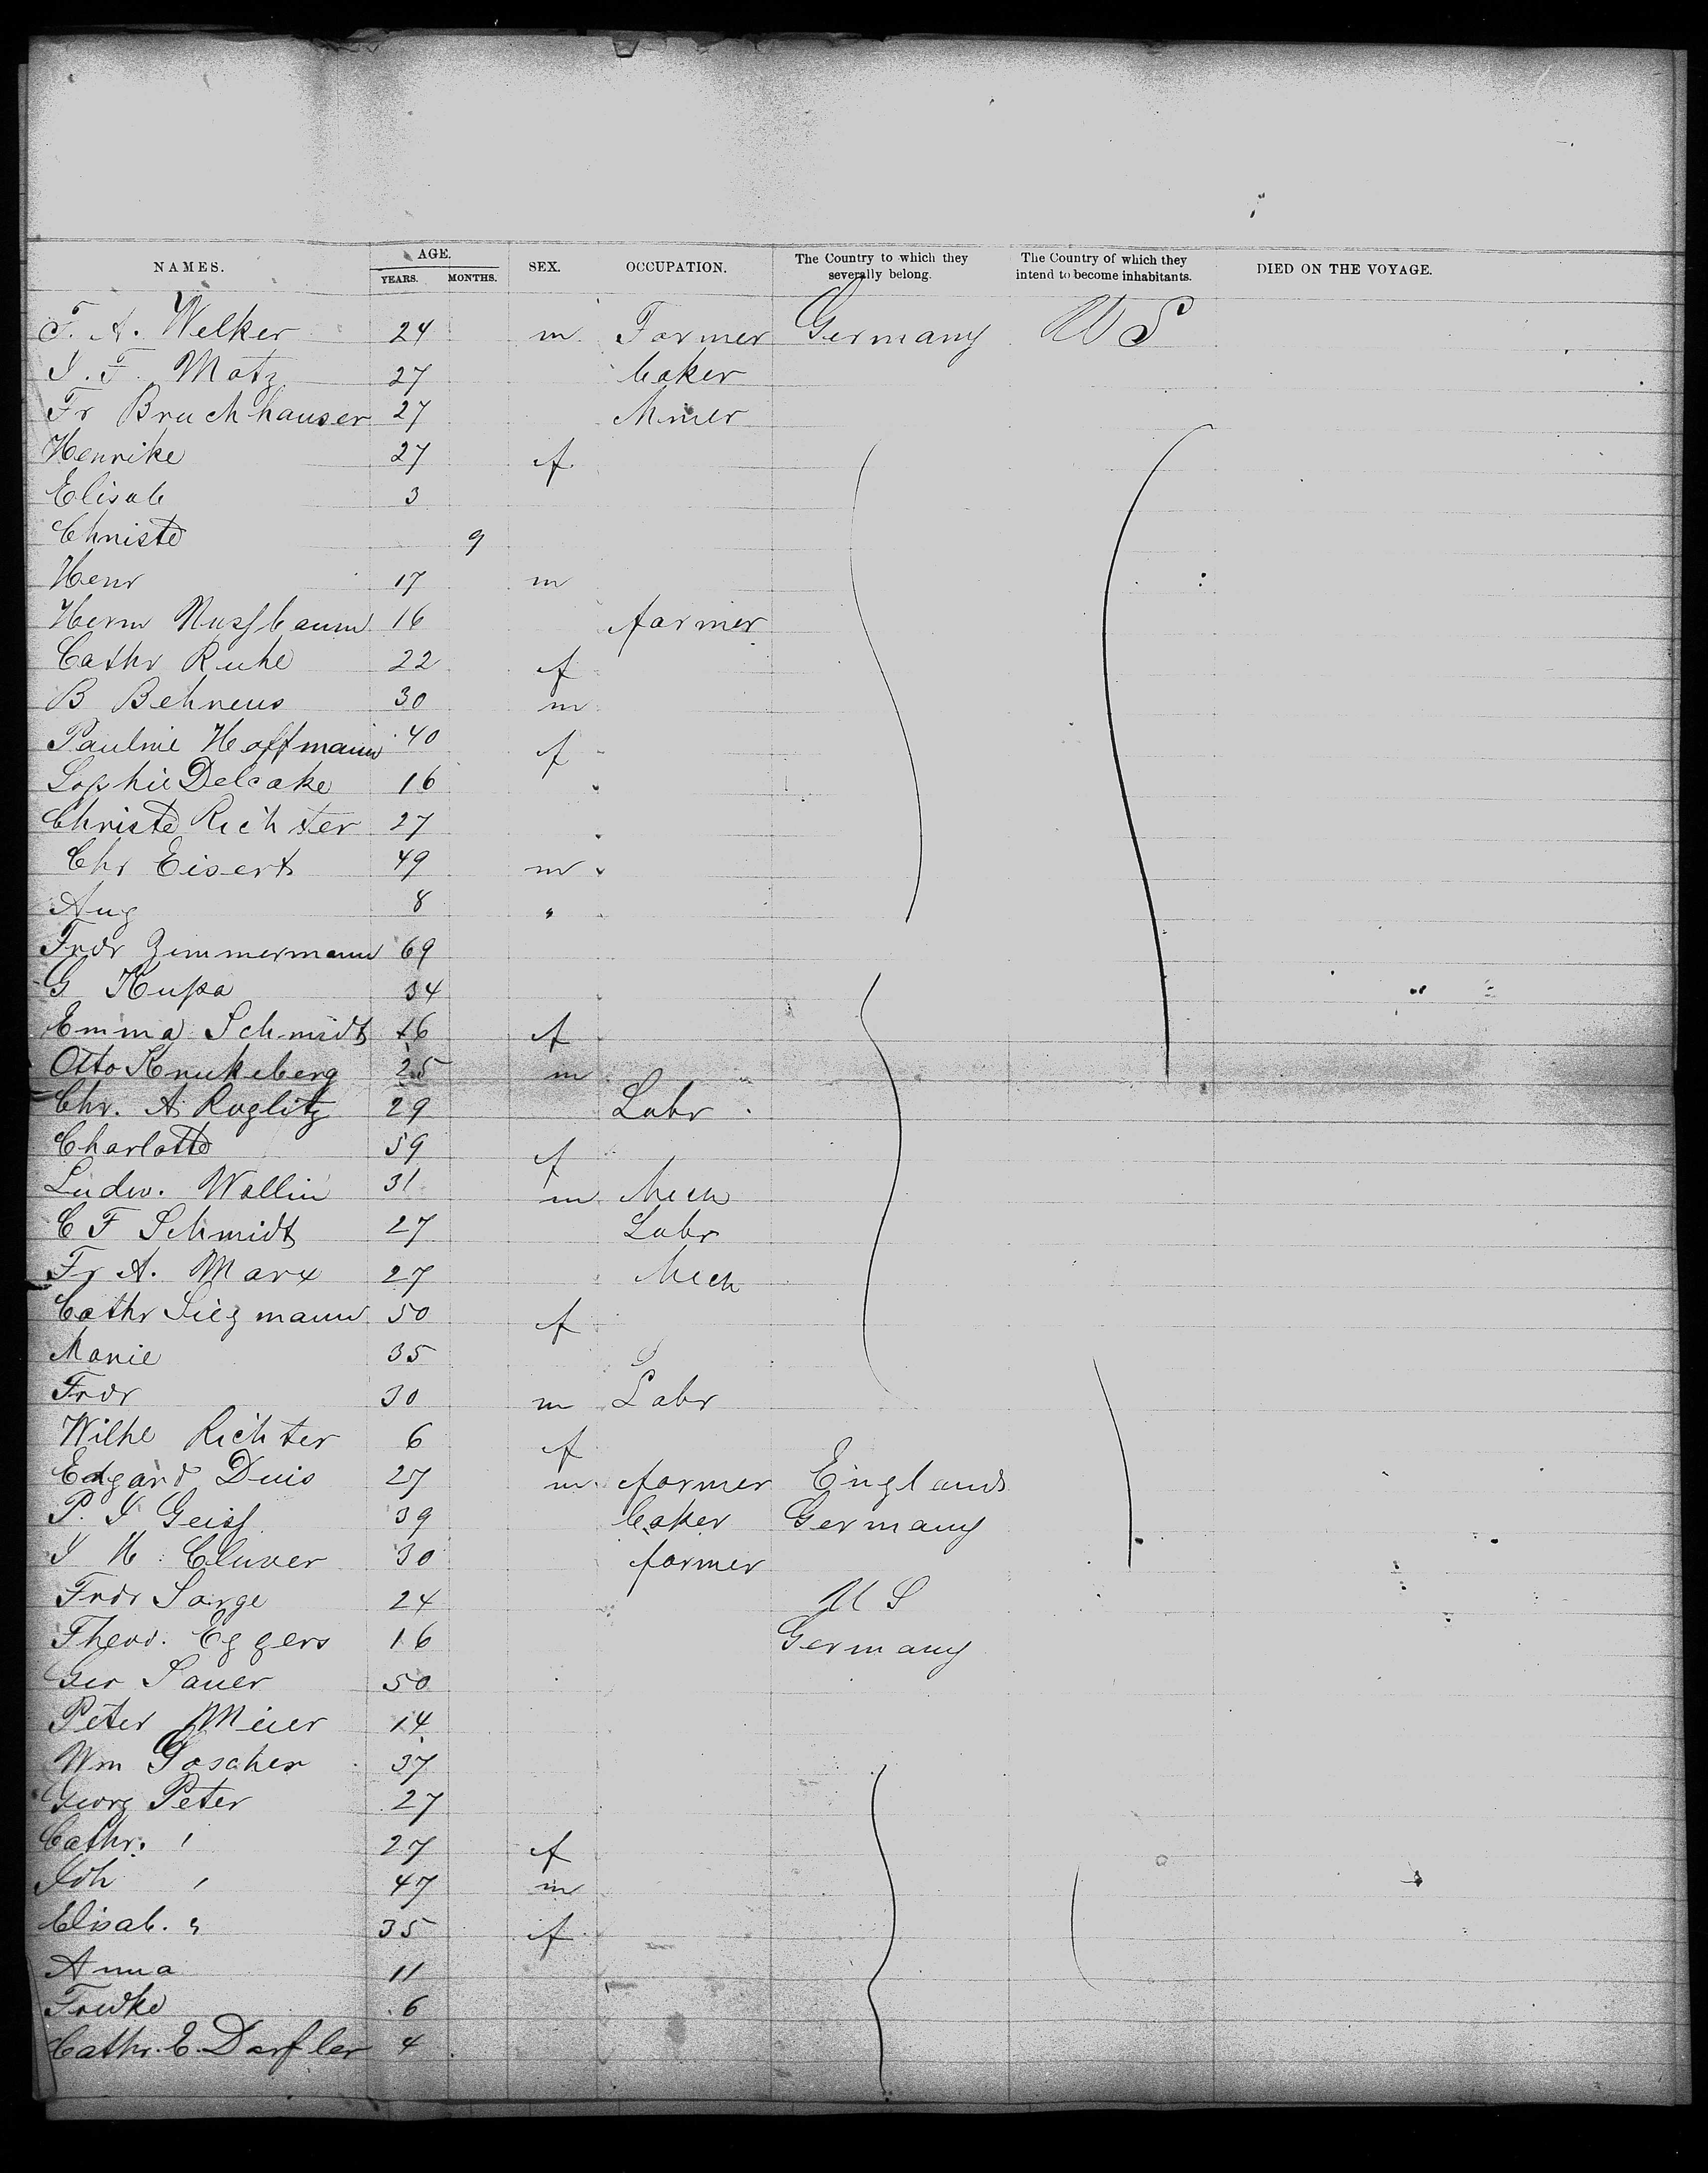 NAMES. AGE. YEARS. MONTHS. SEX. OCCUPATION. The Country to which they severally belong. The Country of which they intend to become inhabitants. DIED ON THE VOYAGE.
F. A. Welker 24 m Farmer Germany U S
J. F. Motz 27 baker
Fr Bruchhauser 27 Miner
Henrike 27 f
Elisab 3
Christe 9
Henr 17 m
Herm Nussbaum 16 farmer
Cathr Ruhe 22 f
B Behrens 30 m
Pauline Hoffmann 40 f
Sophie Delcake 16
Christe Richter 27
Chr Eisert 49 m
Aug 8 "
Fredr Zimmermann 69
G Kupa 34
Emma Schmidt 16 f
Otto Knukeberg 25 m
Chr. A. Roglitz 29 Labr
Charlotte 59 f
Ludw. Wallin 31 m Mech
C F Schmidt 27 Labr
Fr A. Marx 27 Mech
Cathr Siegmann 50 f
Marie 35
Fredr 30 m Labr
Wilhe Richter 6 f
Edgard Duis 27 m farmer England
P. J Geiss 39 baker Germany
J H Cluver 30 farmer
Fredr Sarge 24 U S
Theod. Eggers 16 Germany
Ger Sauer 50
Peter Meier 14
Wm Goscher 37
Georg Peter 27
Cathr. " 27 f
Joh " 47 m
Elisab. " 35 f
Anna 11
Friedke 6
Cathr. E. Dorfler 4